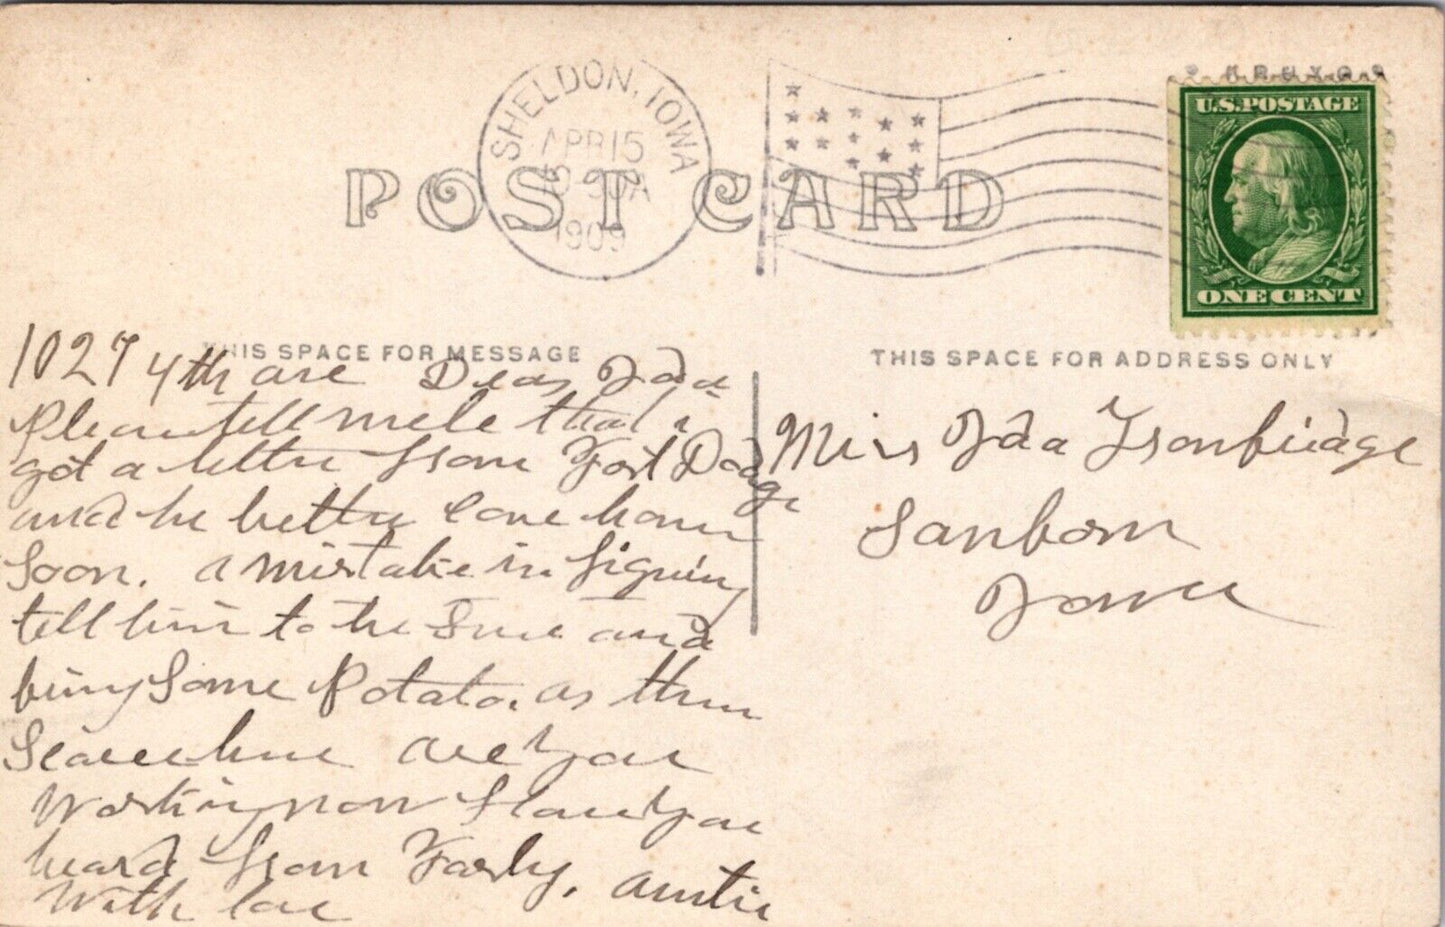 SHELDON, IOWA
APR 15
1909
U.S. POSTAGE
ONE CENT
POST CARD
THIS SPACE FOR MESSAGE
THIS SPACE FOR ADDRESS ONLY
1027 4th ave Dear Ida
Please tell that
got a letter from Fort Dodge
and he better come home
soon. a mistake in signing
tell him to the and
bring some Potato. as them
Scarce here are you
Working now have you
heard from Farly. Auntie
With love
Miss Ida Ironbridge
Sanborn
Iowa